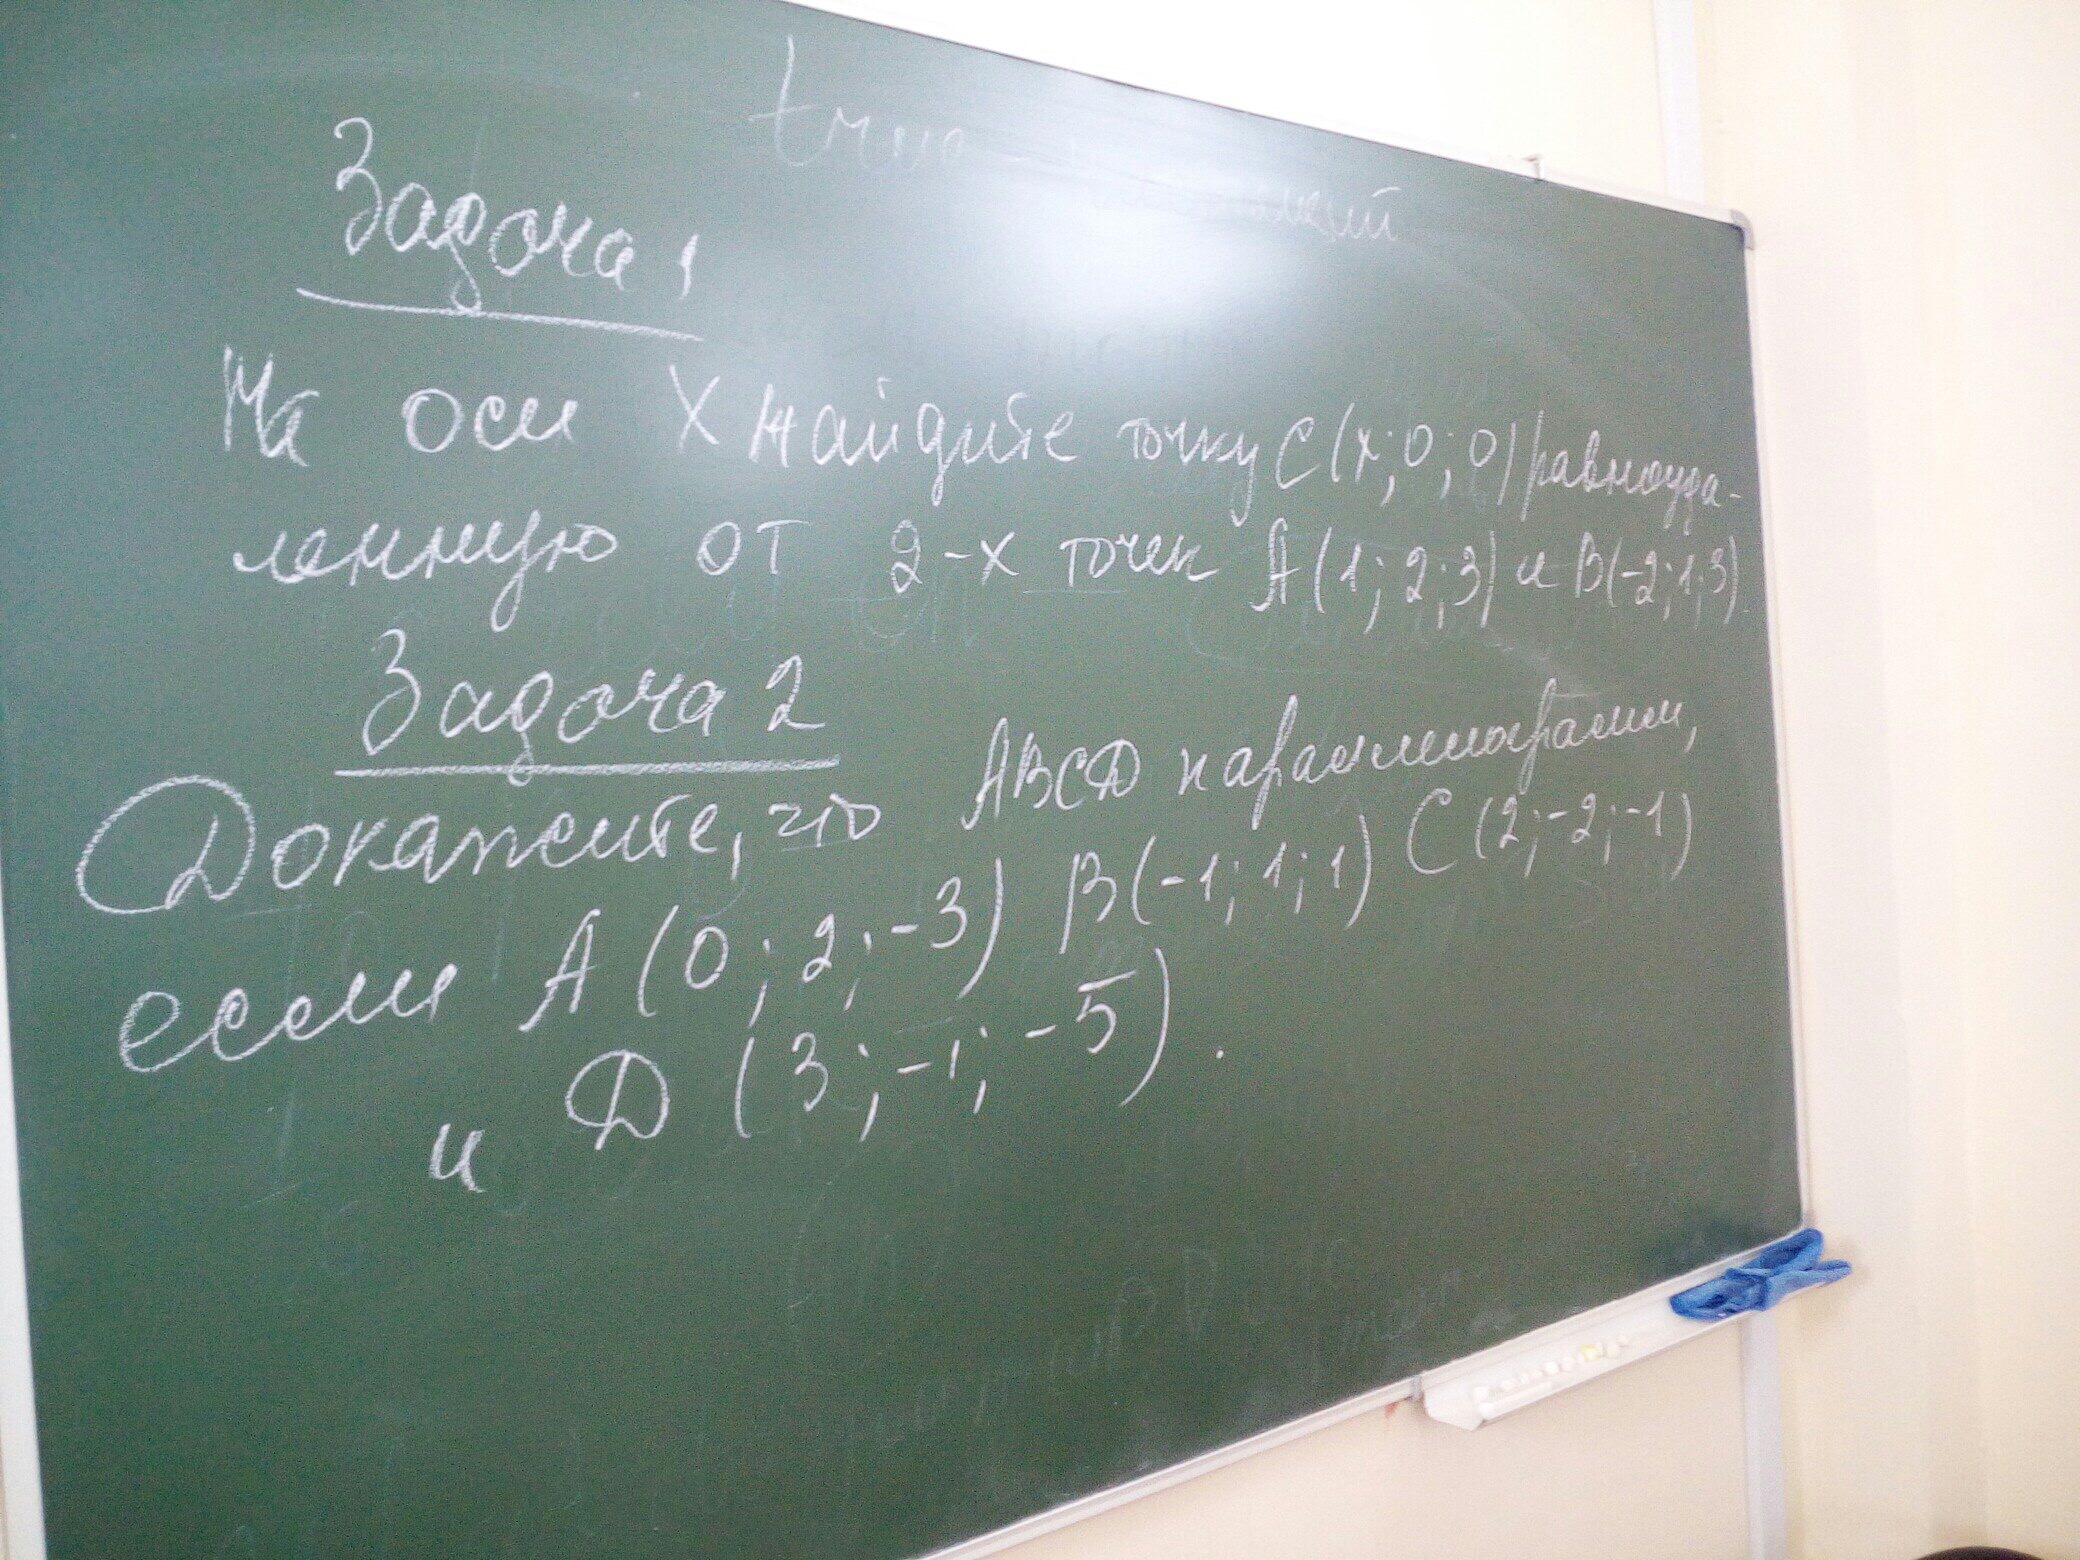 Задача 1
На оси X найдите точку C(x; 0; 0) равноуда-
ленную от 2-х точек A(1; 2; 3) и B(-2; 1; 3)
Задача 2
Докажите, что ABCD параллелограмм,
если A(0; 2; -3) B(-1; 1; 1) C(2; -2; -1)
и D(3; -1; -5).